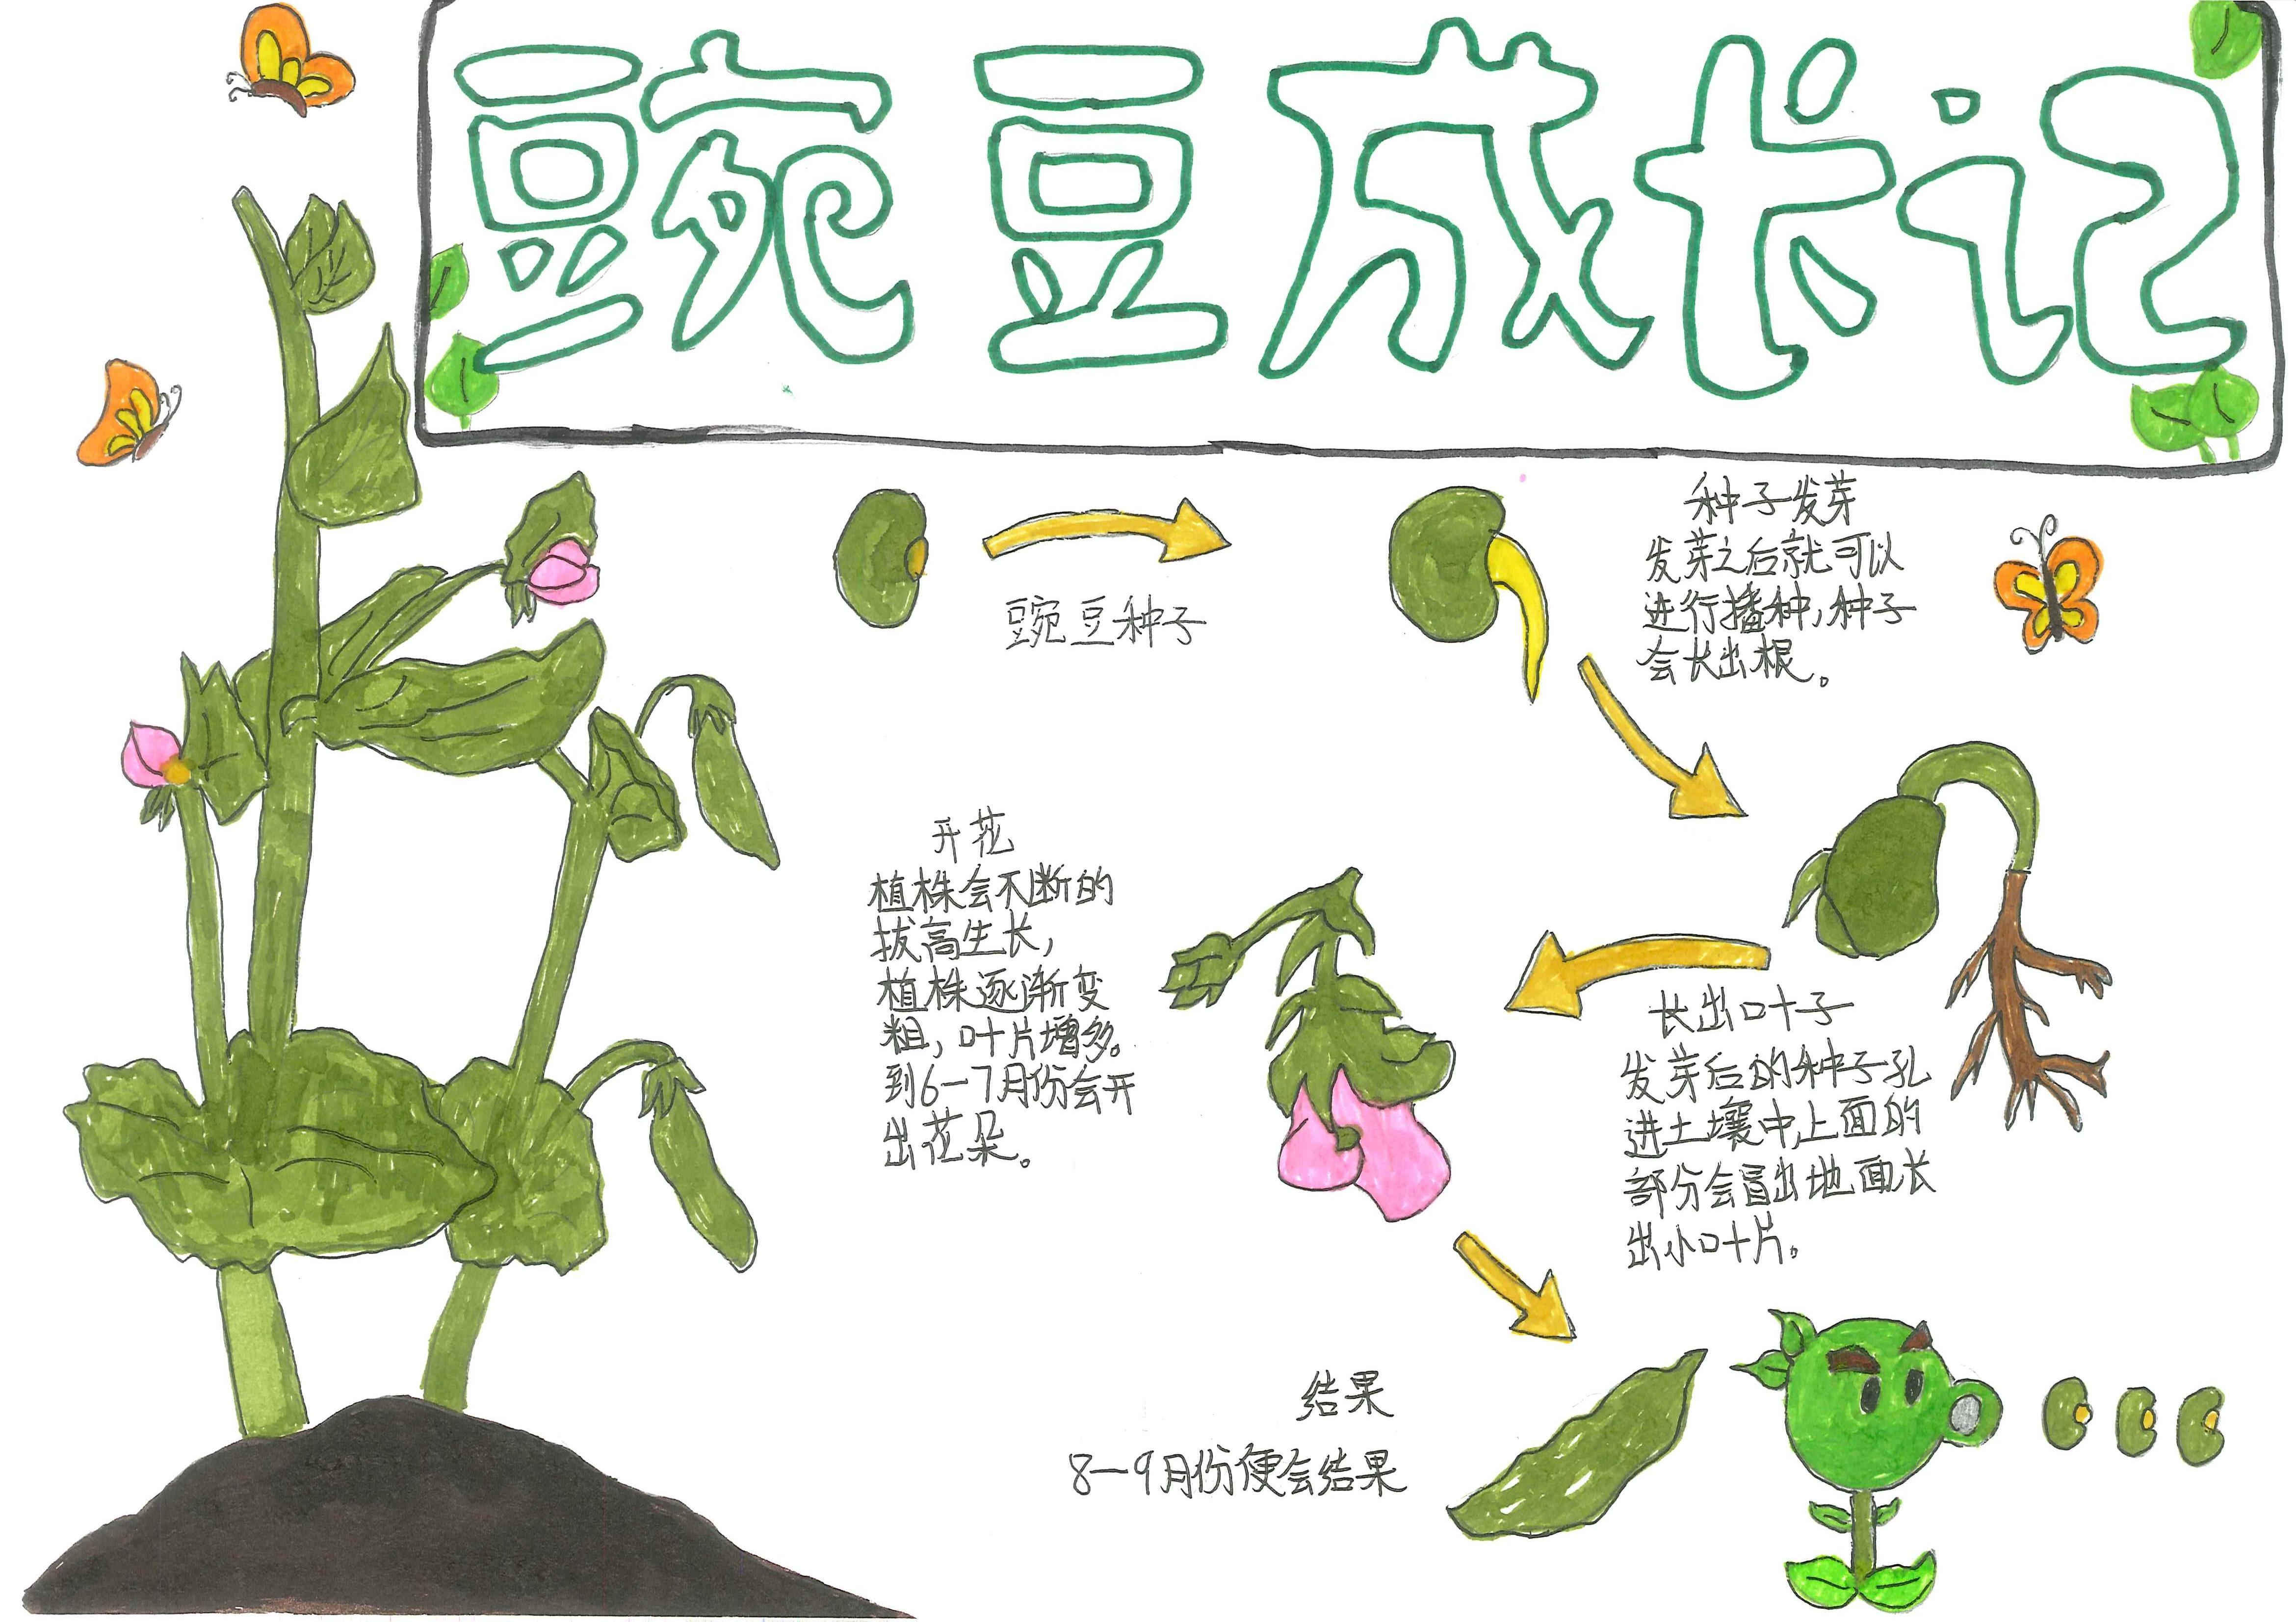 豌豆成长记
豌豆种子
种子发芽
发芽之后就可以
进行播种,种子
会长出根。
长出叶子
发芽后的种子孔
进土壤中,上面的
部分会冒出地面长
出小叶片。
开花
植株会不断的
拔高生长,
植株逐渐变
粗,叶片增多。
到6—7月份会开
出花朵。
结果
8—9月份便会结果